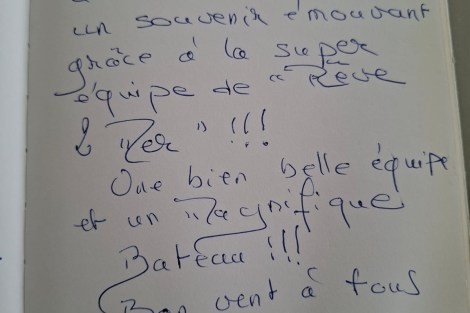 un souvenir émouvant
grâce à la super
équipe de "Rêve
2 Mer" !!!
Une bien belle équipe
et un Magnifique
Bateau !!!
Bon vent à tous